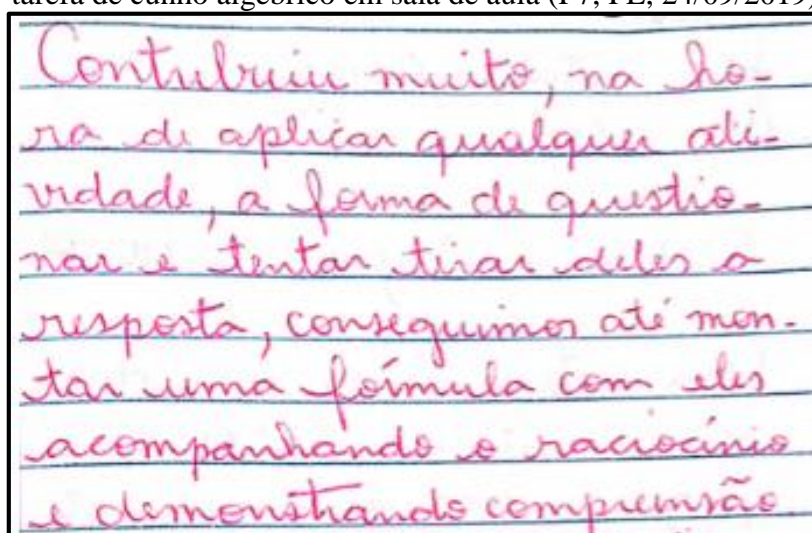 tarefa de cunho algébrico em sala de aula (P7, PE, 24/09/2019)
Contubruiu muito, na ho-
ra de aplicar qualquer ati-
vidade, a forma de questio-
nar e tentar tirar deles a
resposta, conseguimos até mon-
tar uma fórmula com eles
acompanhando o raciocínio
e demonstrando compreensão